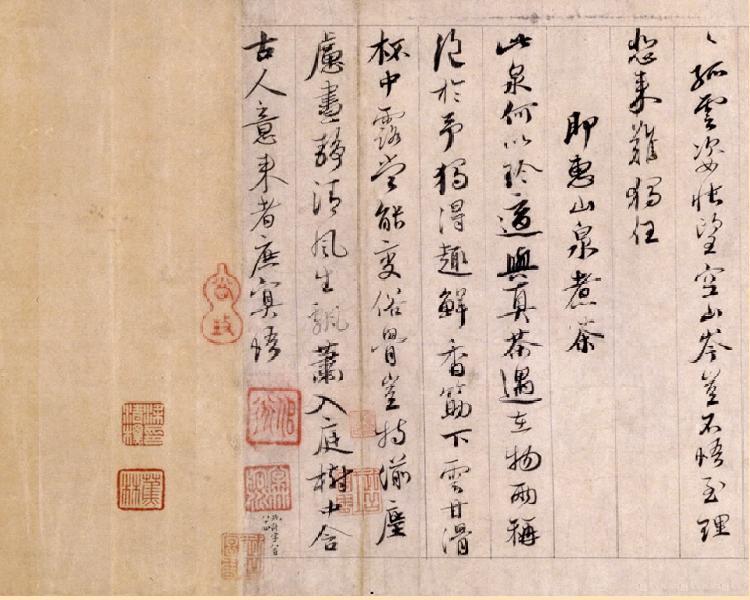 〻孤雲姿悵望空山岑豈不悟至理
悲來難獨任
即惠山泉煮茶
此泉何以珍適與真茶遇在物兩稱
絕於予獨得趣鮮香筯下雲甘滑
杯中露當能變俗骨豈特湔塵
慮晝靜清風生飄蕭入庭樹中含
古人意來者庶冥悟
梁清標印
蕉林